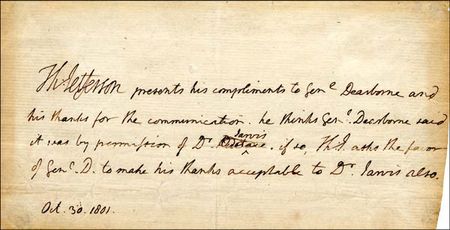 Th: Jefferson presents his compliments to Genl. Dearborne and
his thanks for the communication. he thinks Genl. Dearborne said
it was by permission of Dr. Jarvis. if so, Th: J. asks the favor
of Genl. D. to make his thanks acceptable to Dr. Jarvis also.
Oct. 30. 1801.